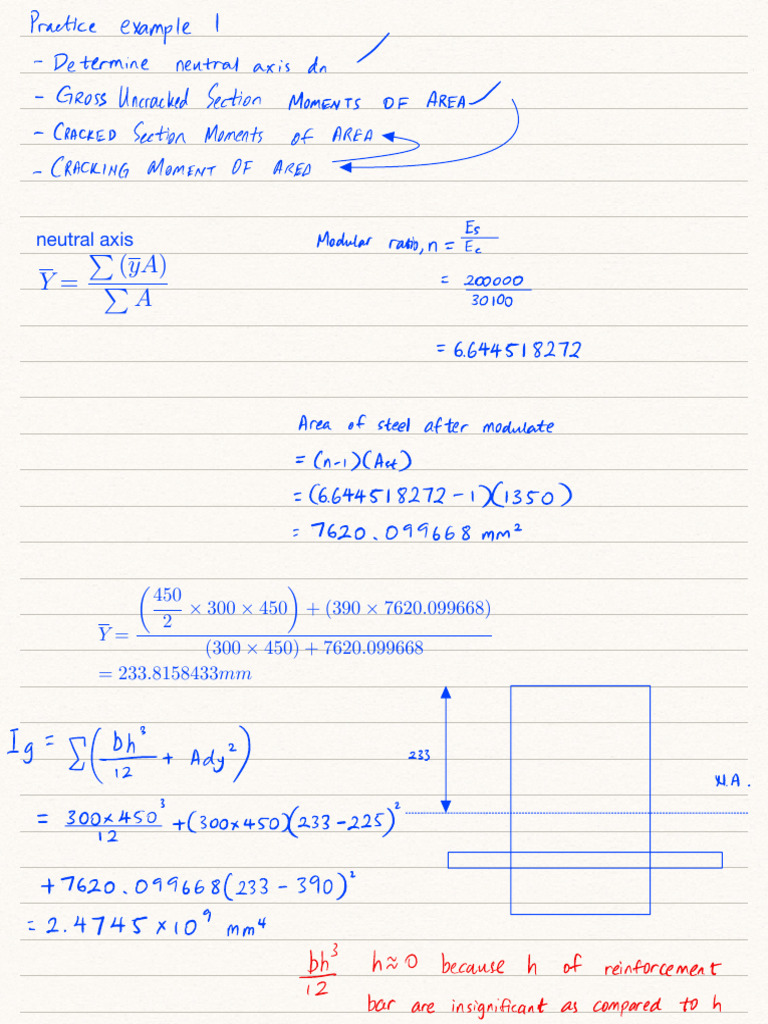 Practice example 1
- Determine neutral axis dn
- GROSS Uncracked Section MOMENTS OF AREA
- CRACKED Section Moments of AREA
- CRACKING MOMENT OF AREA
neutral axis
Y̅ = ∑(y̅A) / ∑A
Modular ratio, n = Es / Ec
= 200000 / 30100
= 6.644518272
Area of steel after modulate
= (n-1)(Act)
= (6.644518272 - 1)(1350)
= 7620.099668 mm²
Y̅ = ((450/2 × 300 × 450) + (390 × 7620.099668)) / ((300 × 450) + 7620.099668)
= 233.8158433mm
Ig = ∑(bh³/12 + Ady²)
= 300×450³/12 + (300×450)(233-225)²
+ 7620.099668(233 - 390)²
= 2.4745 × 10⁹ mm⁴
233
N.A.
bh³/12 h≈0 because h of reinforcement
bar are insignificant as compared to h